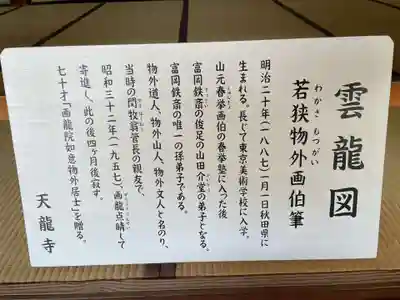 雲龍図
わかさ もつがい
若狭物外画伯筆
明治二十年(一八八七)一月一日秋田県に
生まれる。長じて東京美術学校に入学。
山元春挙画伯の春挙塾に入った後
富岡鉄斎の俊足の山田介堂の弟子となる。
富岡鉄斎の唯一の孫弟子である。
物外道人、物外山人、物外文人と名のり、
当時の関牧翁管長の親友で、
昭和三十二年(一九五七)、画龍点睛して
寄進し、此の後四ヶ月後寂す。
七十才「画龍院如意物外居士」を贈る。
天龍寺